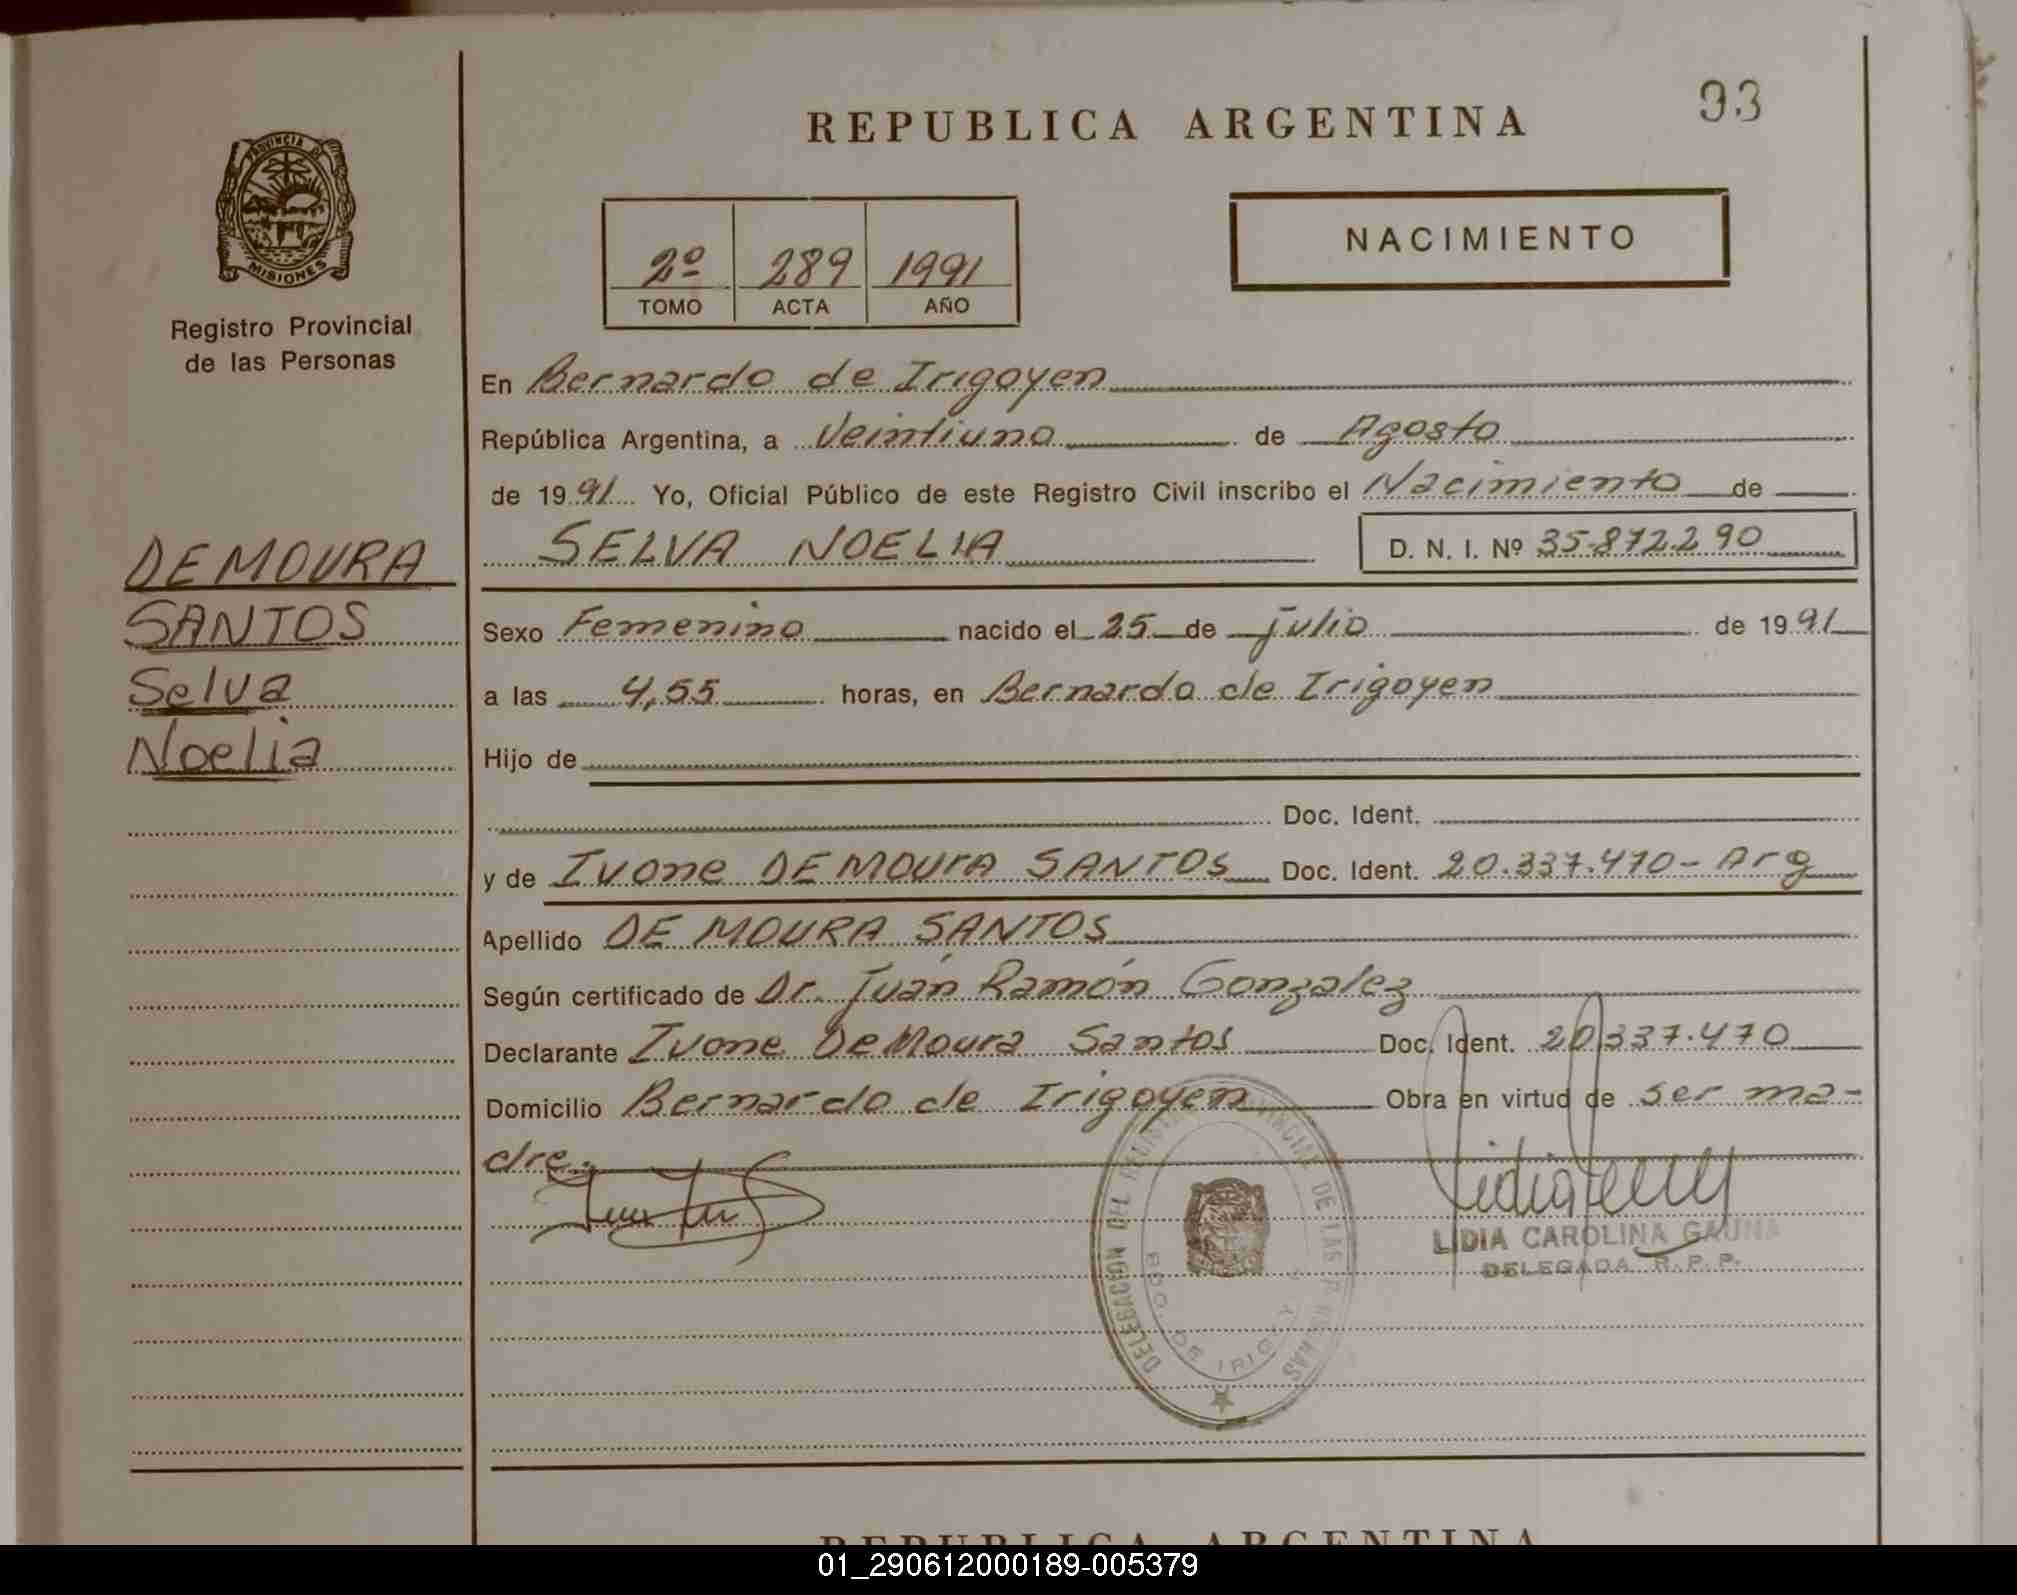 REPUBLICA ARGENTINA
93
PROVINCIA DE
MISIONES
Registro Provincial
de las Personas
2º 289 1991
TOMO ACTA AÑO
NACIMIENTO
En Bernardo de Irigoyen
República Argentina, a Veintiuno de Agosto
de 1991 Yo, Oficial Público de este Registro Civil inscribo el Nacimiento de
SELVA NOELIA D. N. I. Nº 35.872.290
DE MOURA
SANTOS
Selva
Noelia
Sexo Femenino nacido el 25 de julio de 1991
a las 4,55 horas, en Bernardo de Irigoyen
Hijo de
Doc. Ident.
y de Ivone DE MOUrA SANTOS Doc. Ident. 20.337.470- Arg
Apellido DE MOURA SANTOS
Según certificado de Dr. Juán Ramón Gonzalez
Declarante Ivone De Moura Santos Doc. Ident. 20.337.470
Domicilio Bernardo de Irigoyen Obra en virtud de ser ma-
dre.
DELEGACION DEL REGISTRO PROVINCIAL DE LAS PERSONAS
BDO. DE IRIGOY
LIDIA CAROLINA GAUNA
DELEGADA R. P. P.
REPUBLICA ARGENTINA
01_290612000189-005379